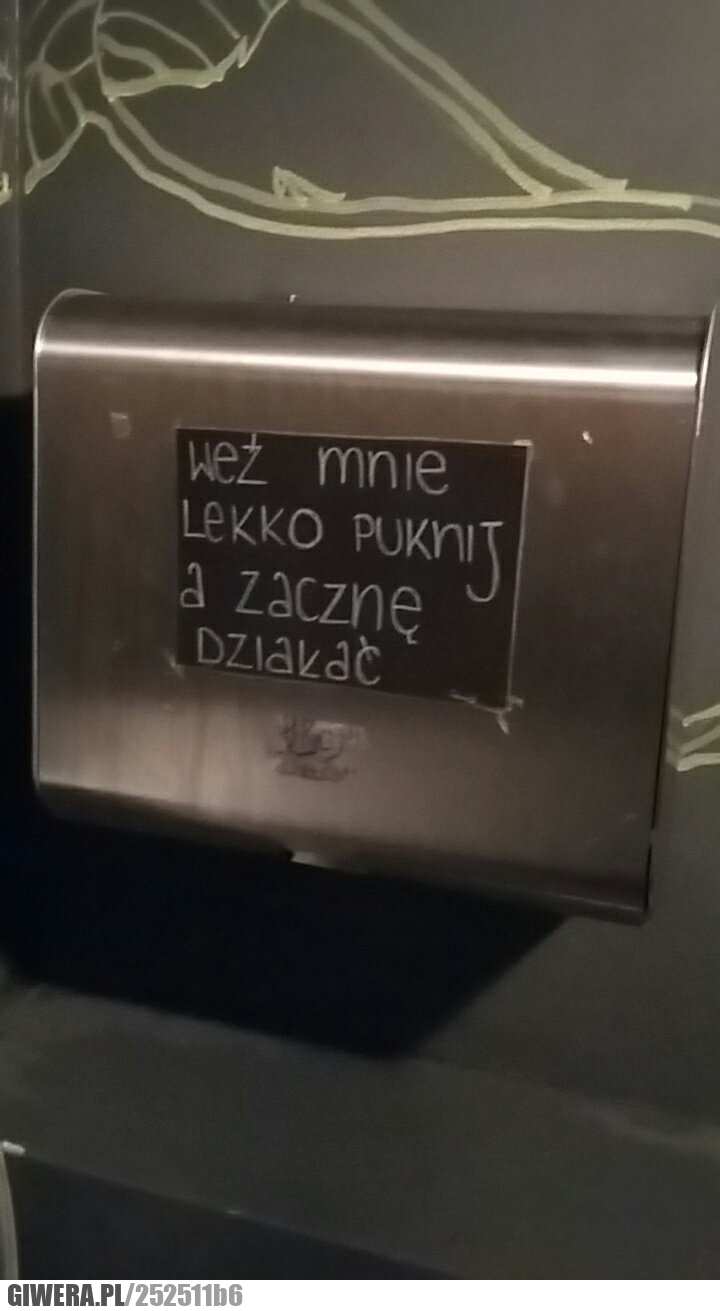 weź mnie
LeKKO PUKNIJ
a zacznę
DZIAŁAĆ
GIWERA.PL/252511b6